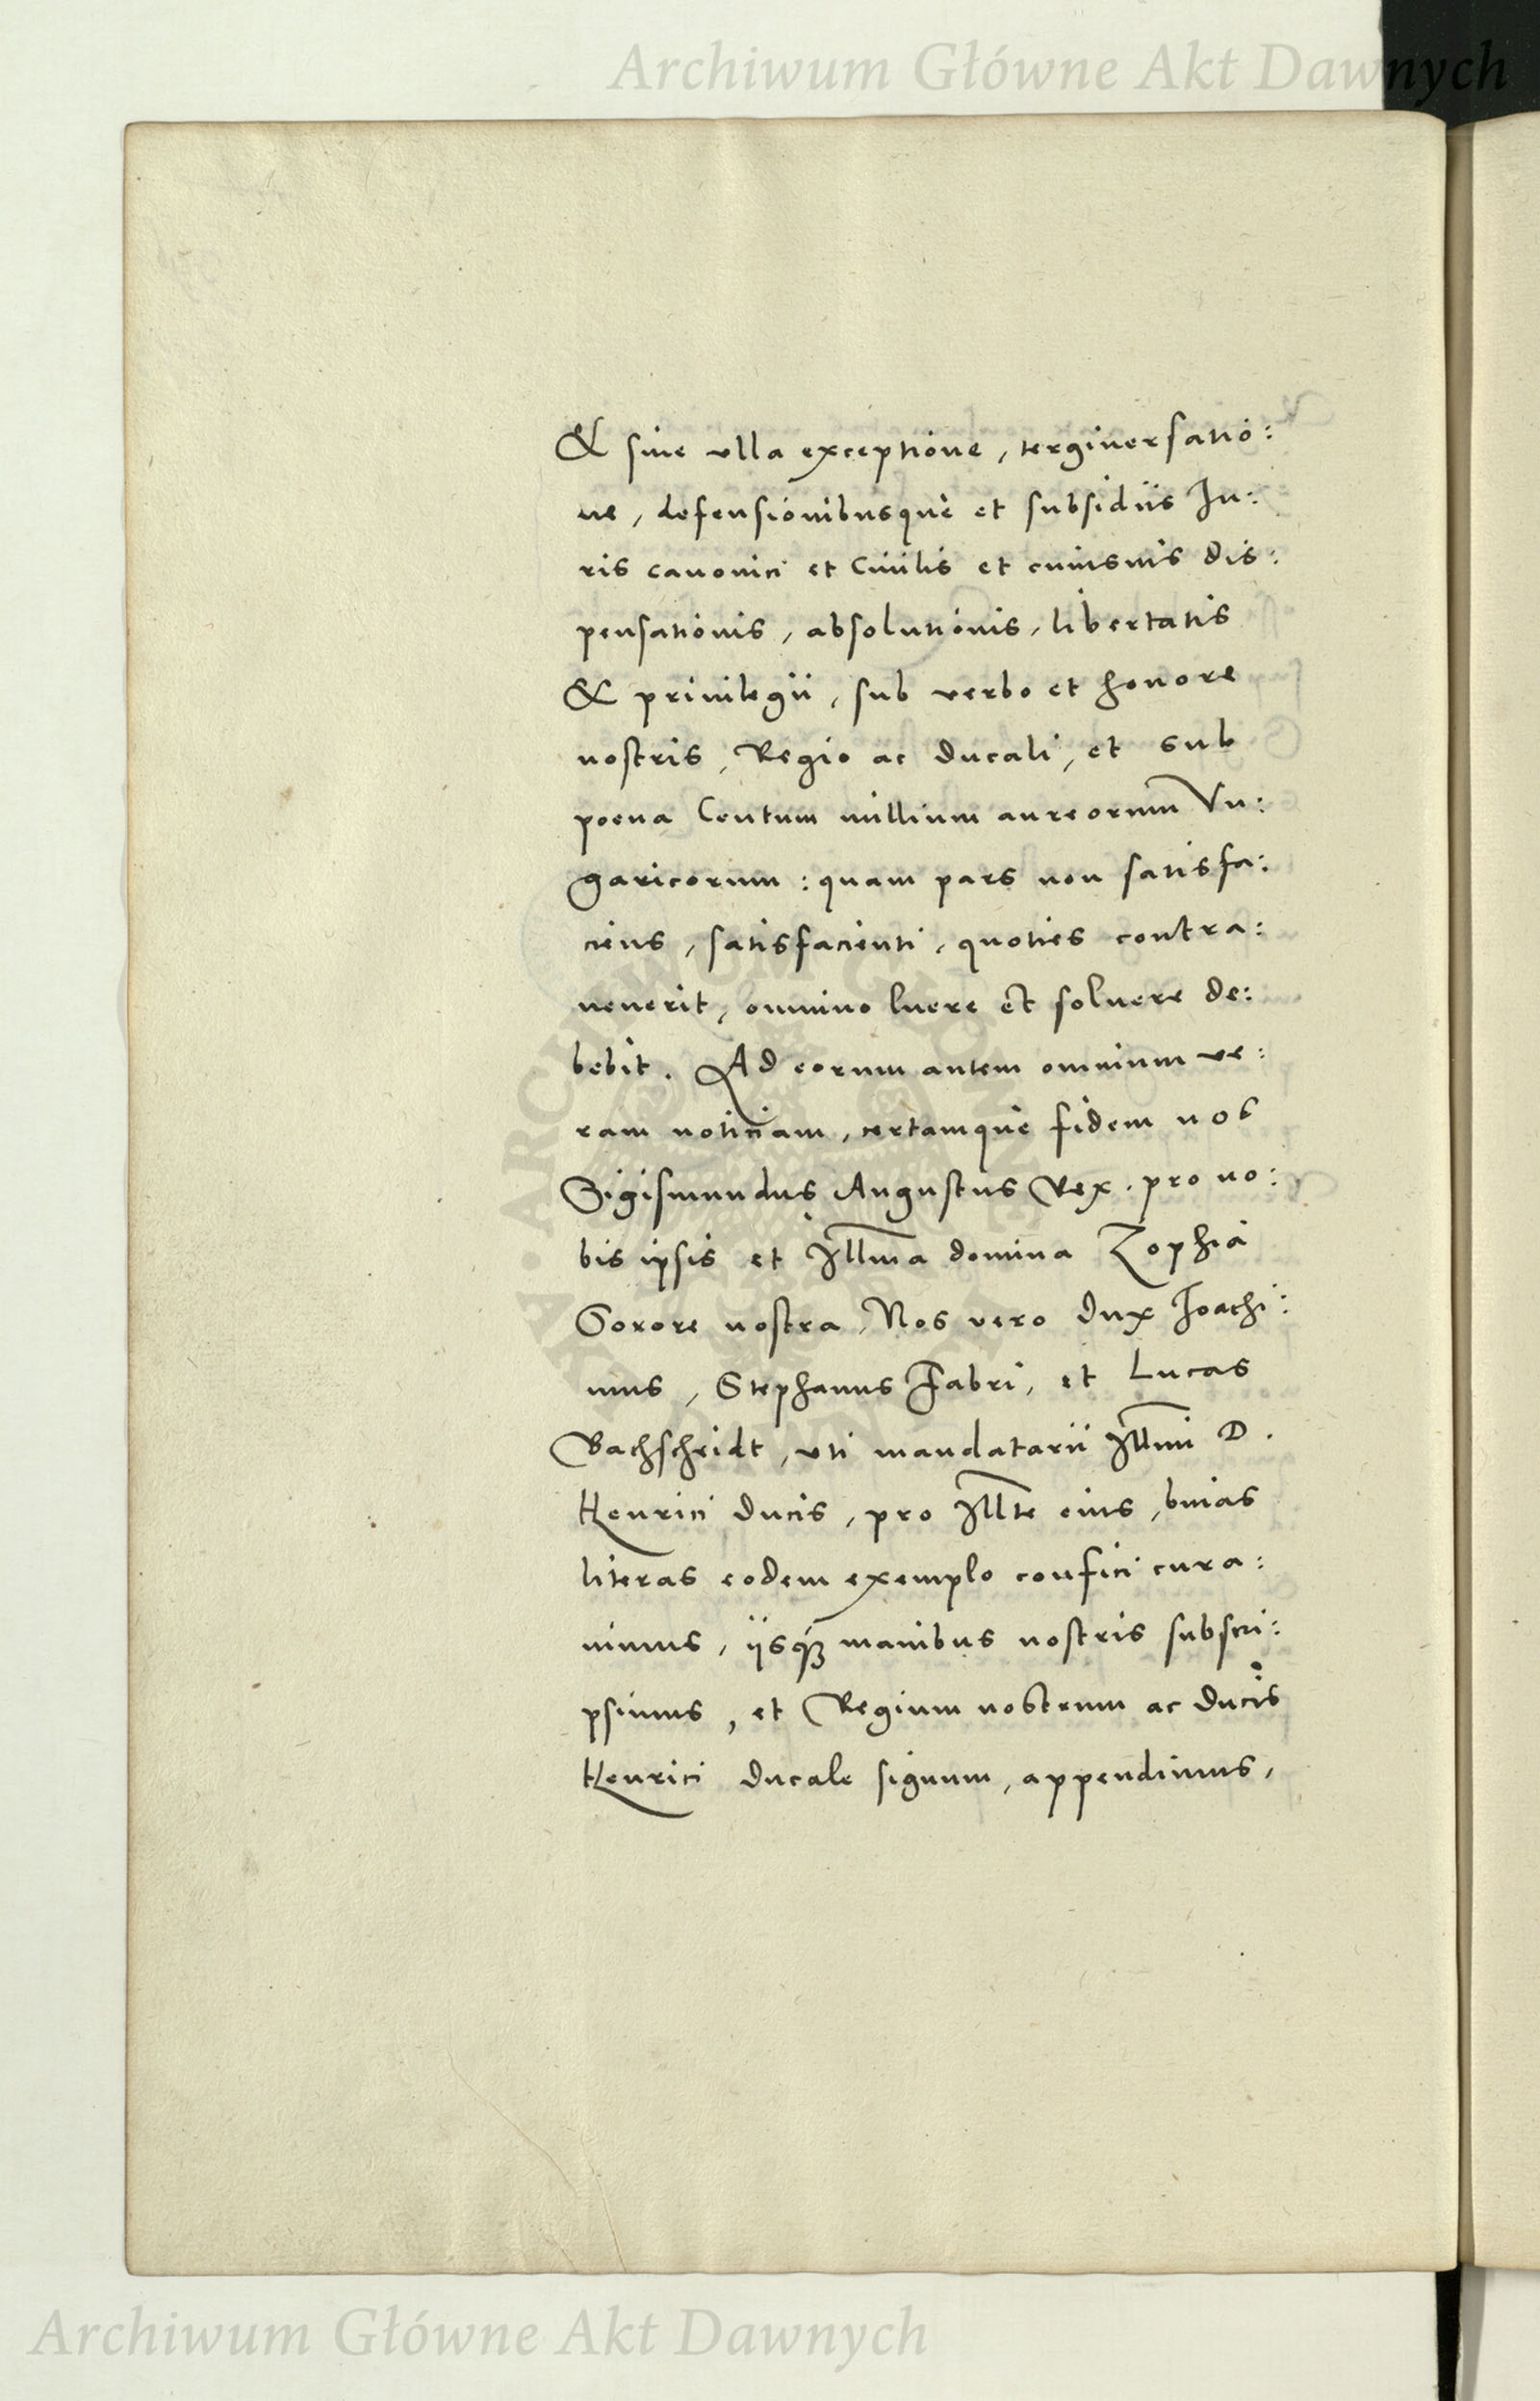 Archiwum Główne Akt Dawnych
& sine vlla exceptione, tergiuersatio:
ne, defensionibusque et subsidiis Ju:
ris canonici et Ciuilis et cuiusuis dis:
pensationis, absolutionis, libertatis
& priuilegii, sub verbo et honore
nostris, Regio ac ducali, et sub
poena Centum millium aureorum Vn:
garicorum: quam pars non satisfa:
ciens, satisfacienti, quoties contra:
uenerit, omnino luere et soluere de:
bebit. Ad eorum autem omnium ve:
ram noticiam, certamque fidem nos
Sigismundus Augustus Rex. pro no:
bis ipsis et Illma domina Zophia
Sorore nostra, Nos vero dux Joachi:
mus, Stephanus Fabri, et Lucas
Bachscheidt, vti mandatarii Illmi D.
Henrici ducis, pro Illte eius, binas
literas eodem exemplo confici cura:
uimus, iisq; manibus nostris subscri:
psimus, et Regium nostrum ac ducis
Henrici ducale signum, appendimus,
Archiwum Główne Akt Dawnych